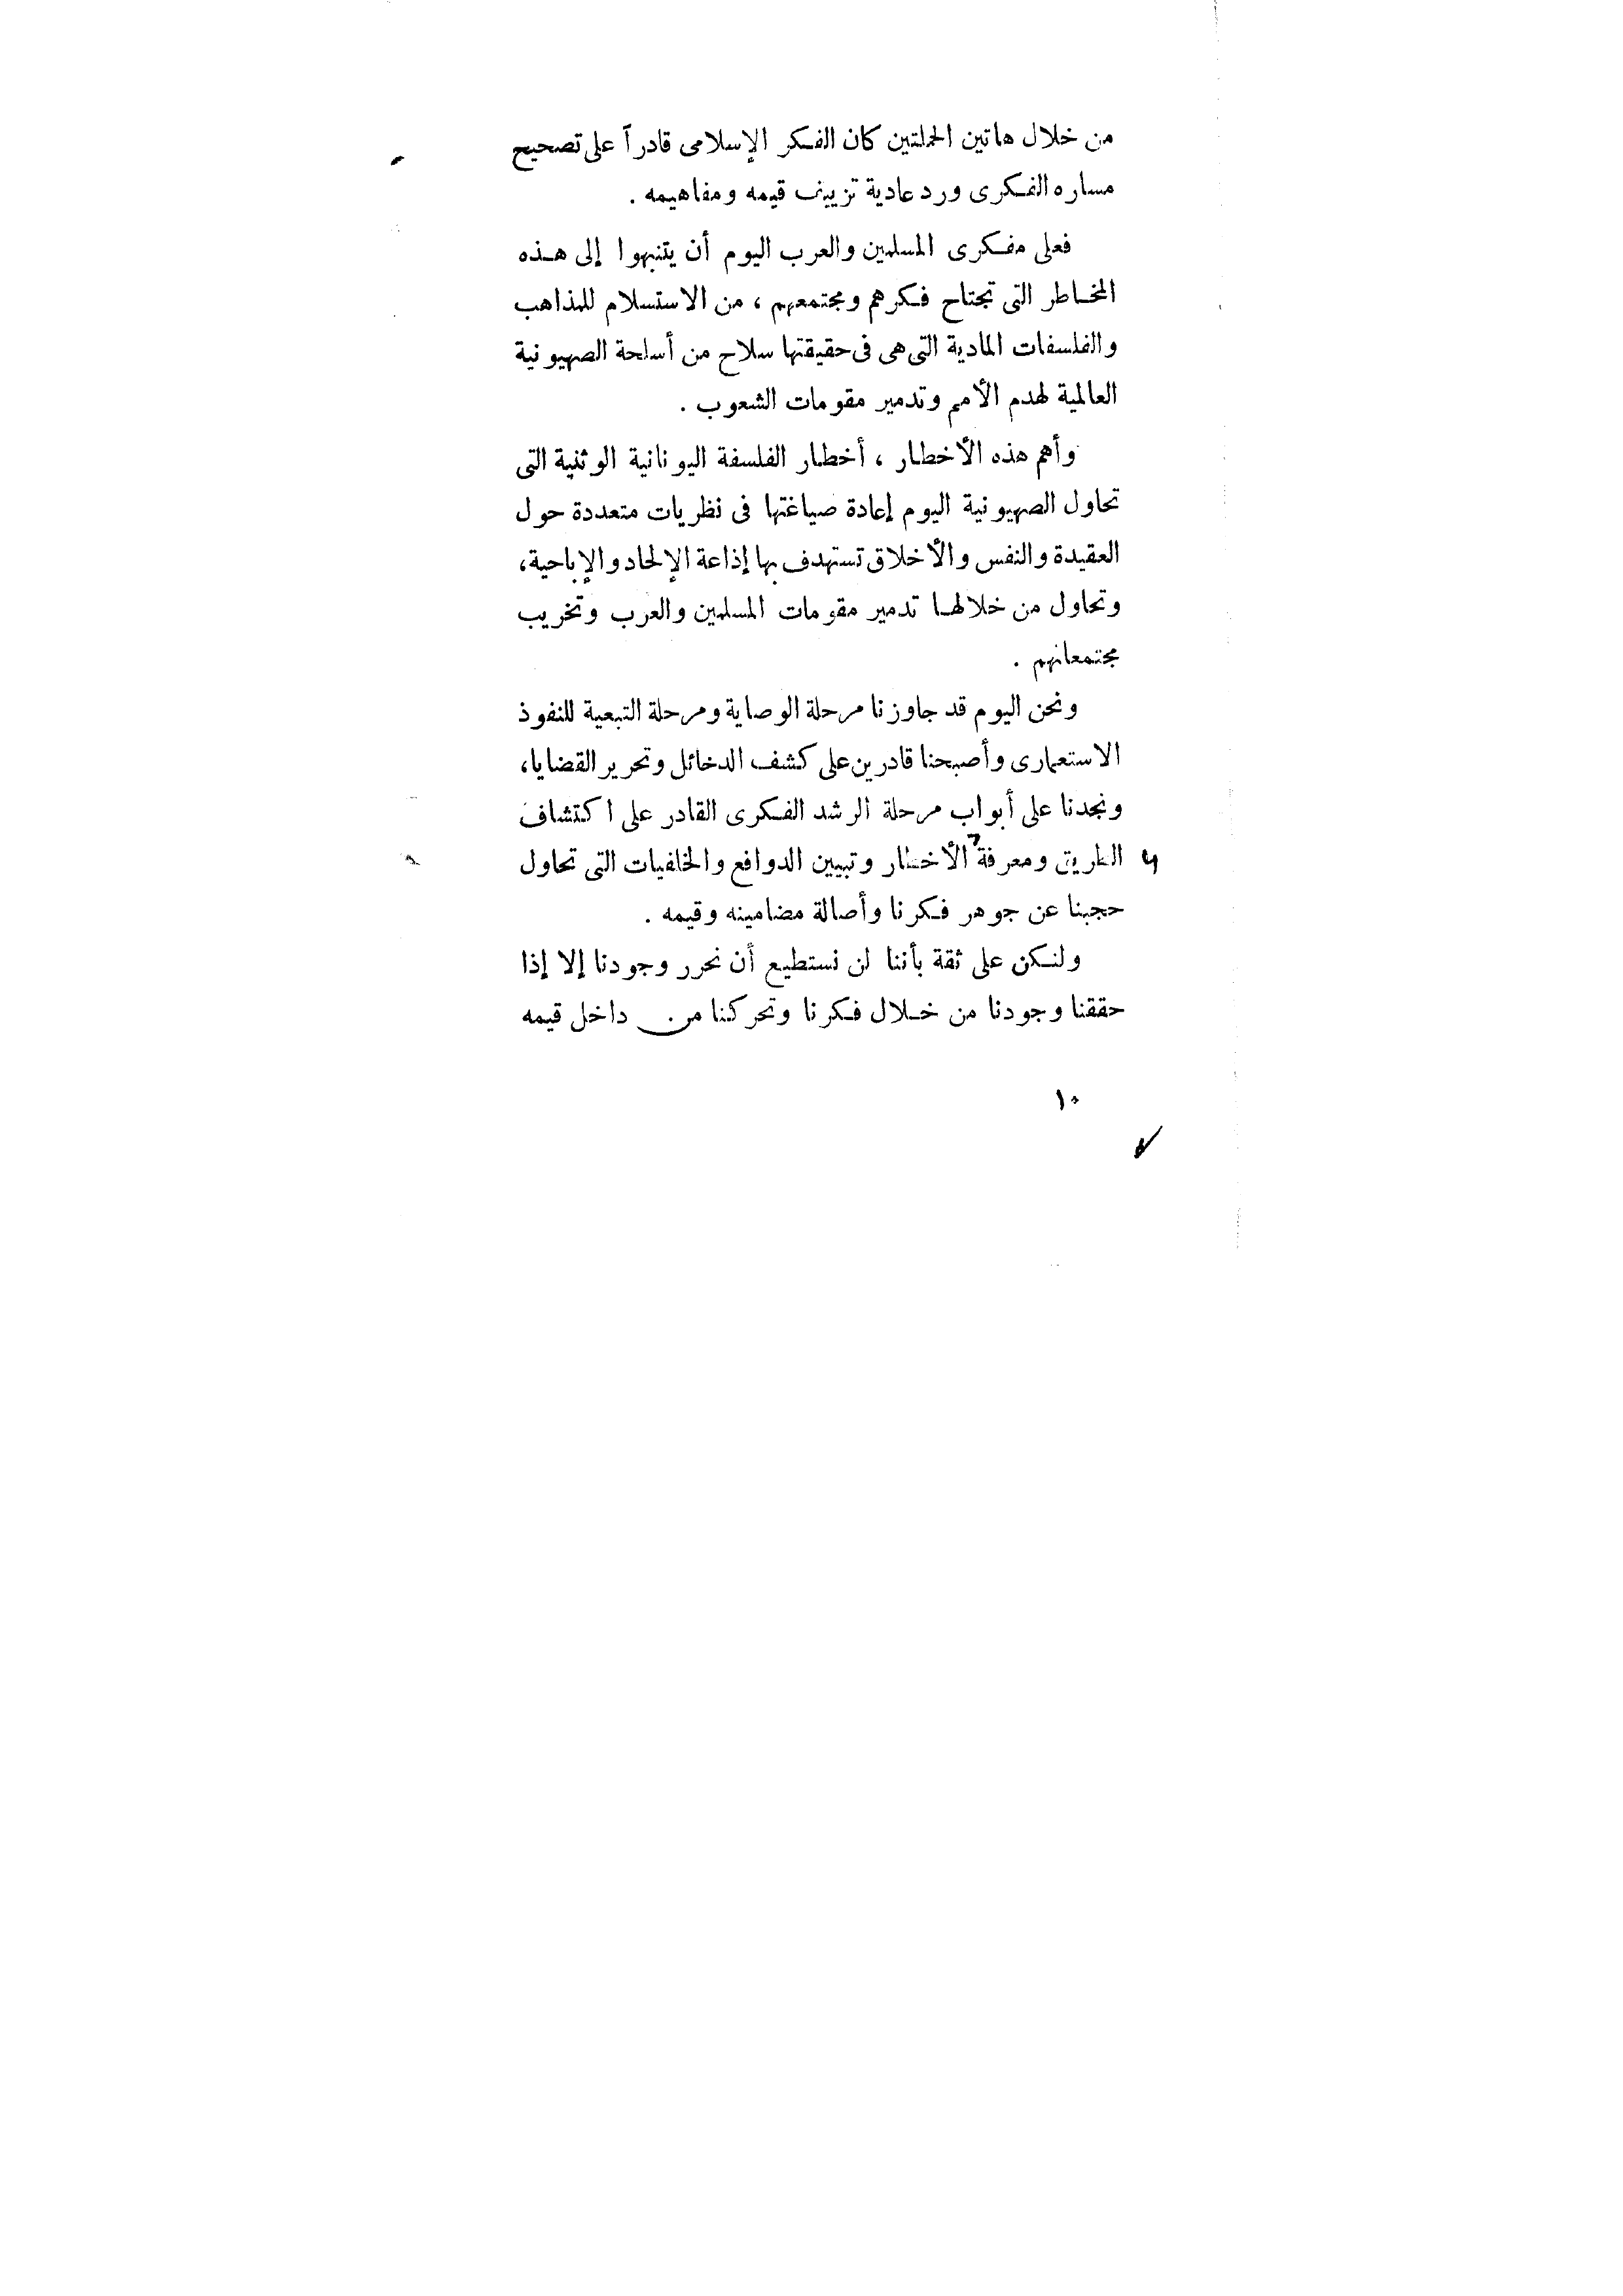 من خلال هاتين الحملتين كان الفكر الإسلامى قادراً على تصحيح
مساره الفكرى ورد عادية تزييف قيمه ومفاهيمه .
فعلى مفكرى المسلمين والعرب اليوم أن يتنبهوا إلى هذه
المخاطر التى تجتاح فكرهم ومجتمعهم ، من الاستسلام للمذاهب
والفلسفات المادية التى هى فى حقيقتها سلاح من أسلحة الصهيونية
العالمية لهدم الأمم وتدمير مقومات الشعوب .
وأهم هذه الأخطار ، أخطار الفلسفة اليونانية الوثنية التى
تحاول الصهيونية اليوم إعادة صياغتها فى نظريات متعددة حول
العقيدة والنفس والأخلاق تستهدف بها إذاعة الإلحاد والإباحية،
وتحاول من خلالها تدمير مقومات المسلمين والعرب وتخريب
مجتمعاتهم .
ونحن اليوم قد جاوزنا مرحلة الوصاية ومرحلة التبعية للنفوذ
الاستعمارى وأصبحنا قادرين على كشف الدخائل وتحرير القضايا،
ونجدنا على أبواب مرحلة الرشد الفكرى القادر على اكتشاف
الطريق ومعرفة الأخطار وتبيين الدوافع والخلفيات التى تحاول
حجبنا عن جوهر فكرنا وأصالة مضامينه وقيمه .
ولنكن على ثقة بأننا لن نستطيع أن نحرر وجودنا إلا إذا
حققنا وجودنا من خلال فكرنا وتحركنا من داخل قيمه
١٠